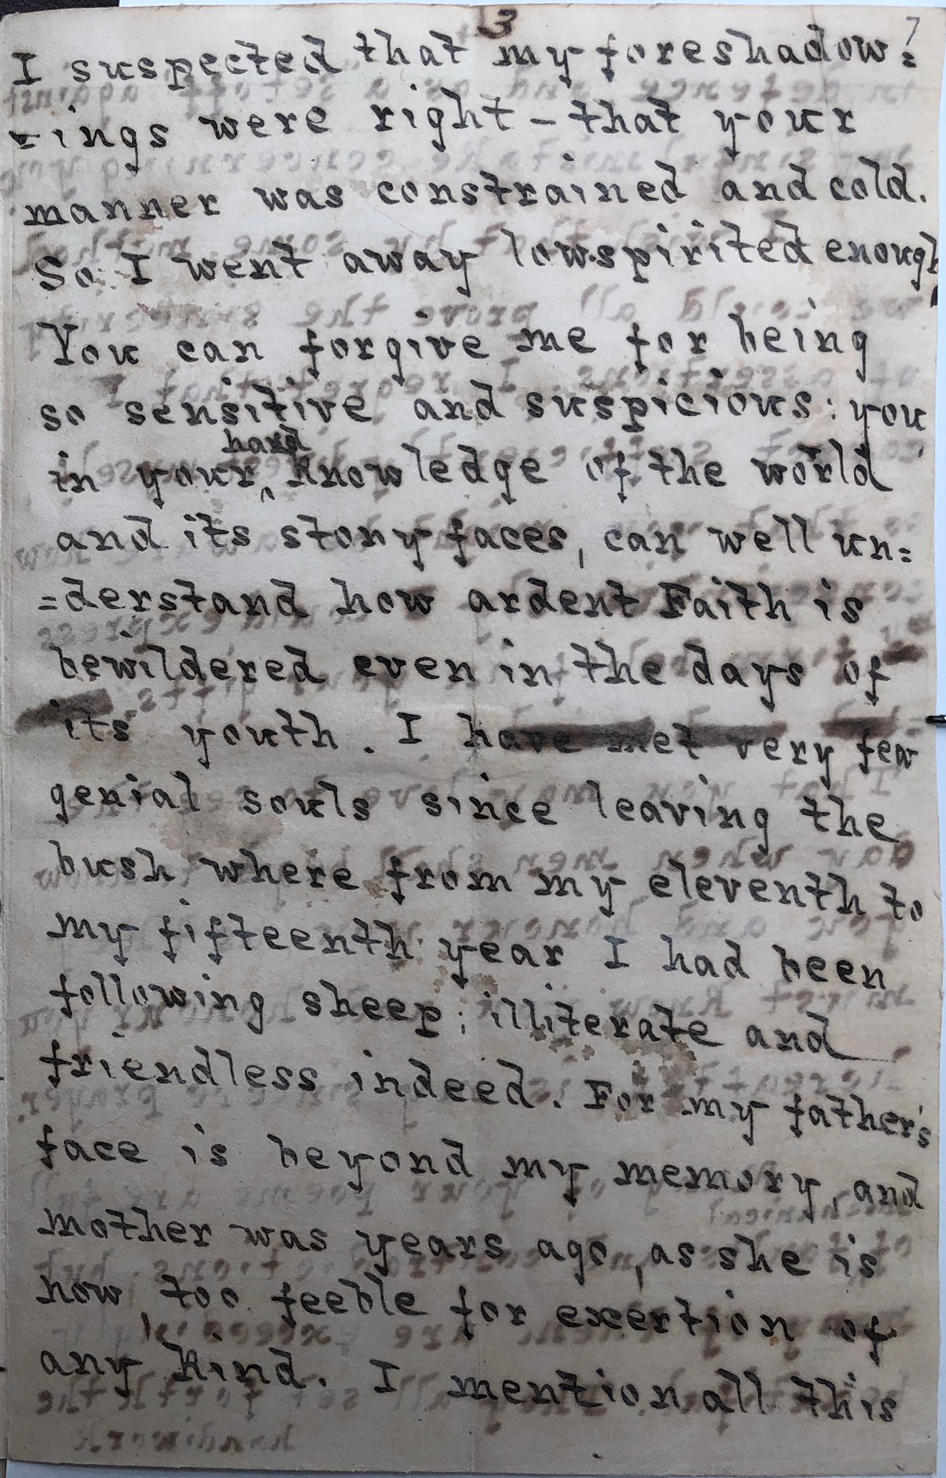 3 7
I suspected that my foreshadow=
=ings were right – that your
manner was constrained and cold.
So I went away lowspirited enough
You can forgive me for being
so sensitive and suspicious: you
hard
in your ‸ knowledge of the world
and its stony faces, can well un=
=derstand how ardent Faith is
bewildered even in the days of
its youth. I have met very few
genial souls since leaving the
bush where from my eleventh to
my fifteenth year I had been
following sheep; illiterate and
friendless indeed. For my father's
face is beyond my memory, and
mother was years ago, as she is
now, too feeble for exertion of
any kind. I mention all this